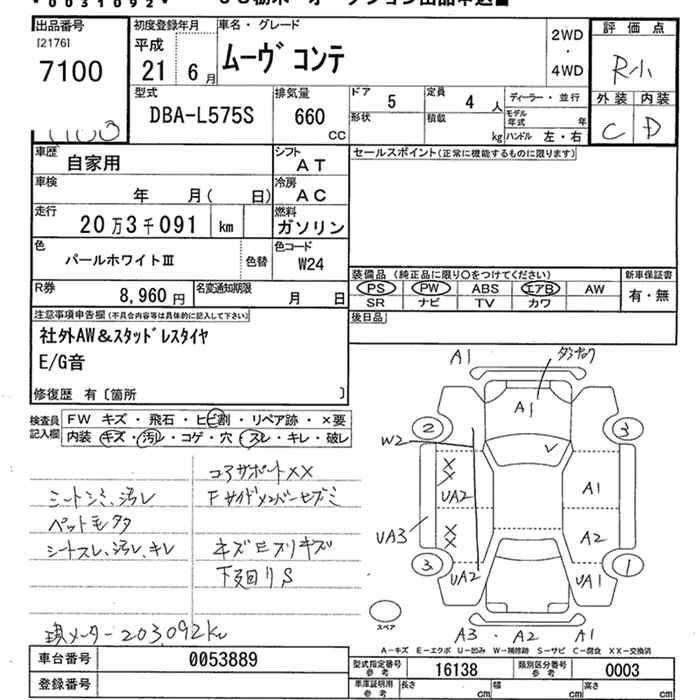 * 0 0 3 1 0 9 2 *
出品番号 初度登録年月 車名・グレード 評価点
[2176] 平成
7100 21 年 6 月 ムーヴ コンテ 2WD・4WD R
外装 内装
型式 排気量 ドア 5 定員 4 人 ディーラー・並行
DBA-L575S 660 CC 形状 積載 kg モデル年式 年 C D
ハンドル 左・右
車歴 自家用 シフト AT セールスポイント(正常に機能するものに限ります)
車検 年 月( 日) 冷房 AC
走行 20万3千091 km 燃料 ガソリン
色 パールホワイトⅢ 色替 色コード W24
R券 8,960 円 名変通知期限 月 日
装備品(純正品に限り○をつけてください) 新車保証書
PS PW ABS エアB AW 有・無
SR ナビ TV カワ
注意事項申告欄(不具合内容等は具体的に記入して下さい) 後日品
社外AW&スタッドレスタイヤ
E/G音
修復歴 有〔箇所 〕
検査員記入欄 FW キズ・飛石・ヒビ割・リペア跡・×要
内装 キズ・汚レ・コゲ・穴・スレ・キレ・破レ
コアサポートXX
シートシミ、汚レ Fサイドメンバーセズミ
ペットモウタ
シートスレ、汚レ、キレ キズエクリキズ
下廻りS
現メーター203,092km
A1
A1
2 3
W2
XX
UA2 A1
UA3 XX A2
3 UA2 UA1 1
スペア
A3・A2 A1
A-キズ E-エクボ U-凹み W-補修跡 S-サビ C-腐食 XX-交換済
車台番号 0053889 型式指定番号 参考 16138 類別区分番号 参考 0003
登録番号 車庫証明用 参考 長さ cm 幅 cm 高さ cm